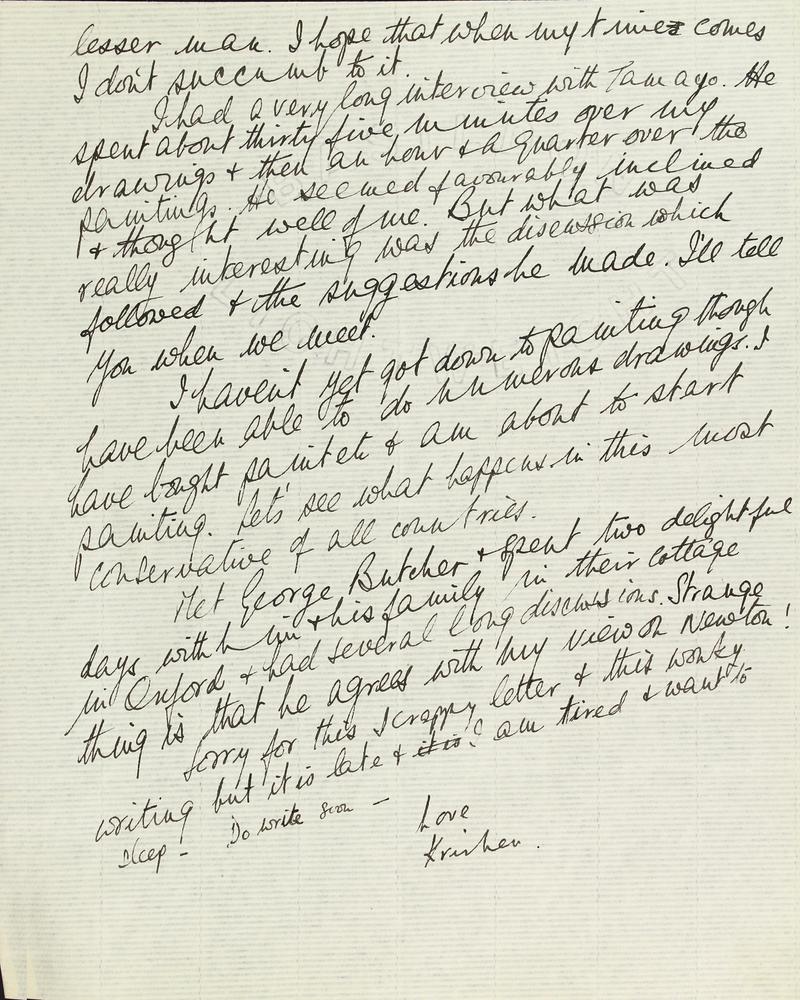 lesser man. I hope that when my time comes
I don't succumb to it.
I had a very long interview with Tamayo. He
spent about thirty five minutes over my
drawings & then an hour & a quarter over the
paintings. He seemed favourably inclined
& thought well of me. But what was
really interesting was the discussion which
followed & the suggestions he made. I'll tell
you when we meet.
I haven't yet got down to painting though
have been able to do numerous drawings. I
have bought paint etc & am about to start
painting. Let's see what happens in this most
conservative of all countries.
Met George Butcher & spent two delightful
days with him & his family in their cottage
in Oxford & had several long discussions. Strange
thing is that he agrees with my view on Newton!
Sorry for this scrappy letter & this wonky
writing but it is late & it is I am tired & want to
sleep - Do write soon -
Love
Krishen.